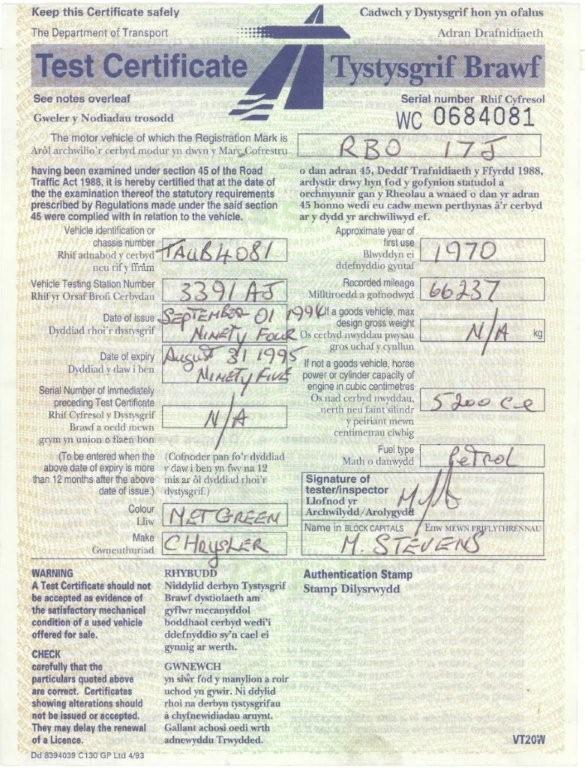 Keep this Certificate safely
Cadwch y Dystysgrif hon yn ofalus
The Department of Transport
Adran Drafnidiaeth
Test Certificate
Tystysgrif Brawf
See notes overleaf
Gweler y Nodiadau trosodd
Serial number Rhif Cyfresol
WC 0684081
The motor vehicle of which the Registration Mark is
Arôl archwilio'r cerbyd modur yn dwyn y Marc Cofrestru
RBO 17J
having been examined under section 45 of the Road
Traffic Act 1988, it is hereby certified that at the date of
the the examination thereof the statutory requirements
prescribed by Regulations made under the said section
45 were complied with in relation to the vehicle.
o dan adran 45, Deddf Trafnidiaeth y Ffyrdd 1988,
ardystir drwy hyn fod y gofynion statudol a
orchmynnir gan y Rheolau a wnaed o dan yr adran
45 honno wedi eu cadw mewn perthynas â'r cerbyd
ar y dydd yr archwiliwyd ef.
Vehicle identification or
chassis number
Rhif adnabod y cerbyd
neu rif y ffrâm
TAUB4081
Approximate year of
first use
Blwyddyn ei
ddefnyddio gyntaf
1970
Vehicle Testing Station Number
Rhif yr Orsaf Brofi Cerbydau
3391 AJ
Recorded mileage
Milltiroedd a gofnodwyd
66237
Date of issue
Dyddiad rhoi'r dystysgrif
SEPTEMBER 01 1994
NINETY FOUR
If a goods vehicle, max
design gross weight
Os cerbyd nwyddau pwysau
gros uchaf y cynllun
N/A
kg
Date of expiry
Dyddiad y daw i ben
August 31 1995
NINETY FIVE
If not a goods vehicle, horse
power or cylinder capacity of
engine in cubic centimetres
Os nad cerbyd nwyddau,
nerth neu faint silindr
y peiriant mewn
centimetrau ciwbig
5200 cc
Serial Number of immediately
preceding Test Certificate
Rhif Cyfresol y Dystysgrif
Brawf a oedd mewn
grym yn union o flaen hon
N/A
(To be entered when the
above date of expiry is more
than 12 months after the above
date of issue.)
(Cofnoder pan fo'r dyddiad
y daw i ben yn fwy na 12
mis ar ôl dyddiad rhoi'r
dystysgrif.)
Fuel type
Math o danwydd
PETROL
Signature of
tester/inspector
Llofnod yr
Archwilydd/Arolygydd
Colour
Lliw
MET GREEN
Make
Gwneuthuriad
CHRYSLER
Name in BLOCK CAPITALS
Enw MEWN PRIFLYTHRENNAU
M. STEVENS
WARNING
A Test Certificate should not
be accepted as evidence of
the satisfactory mechanical
condition of a used vehicle
offered for sale.
RHYBUDD
Niddylid derbyn Tystysgrif
Brawf dystiolaeth am
gyflwr mecanyddol
boddhaol cerbyd wedi'i
ddefnyddio sy'n cael ei
gynnig ar werth.
Authentication Stamp
Stamp Dilysrwydd
CHECK
carefully that the
particulars quoted above
are correct. Certificates
showing alterations should
not be issued or accepted.
They may delay the renewal
of a Licence.
GWNEWCH
yn siŵr fod y manylion a roir
uchod yn gywir. Ni ddylid
rhoi na derbyn tystysgrifau
â chyfnewidiadau arnynt.
Gallant achosi oedi wrth
adnewyddu Trwydded.
VT20W
Dd 8394039 C130 GP Ltd 4/93